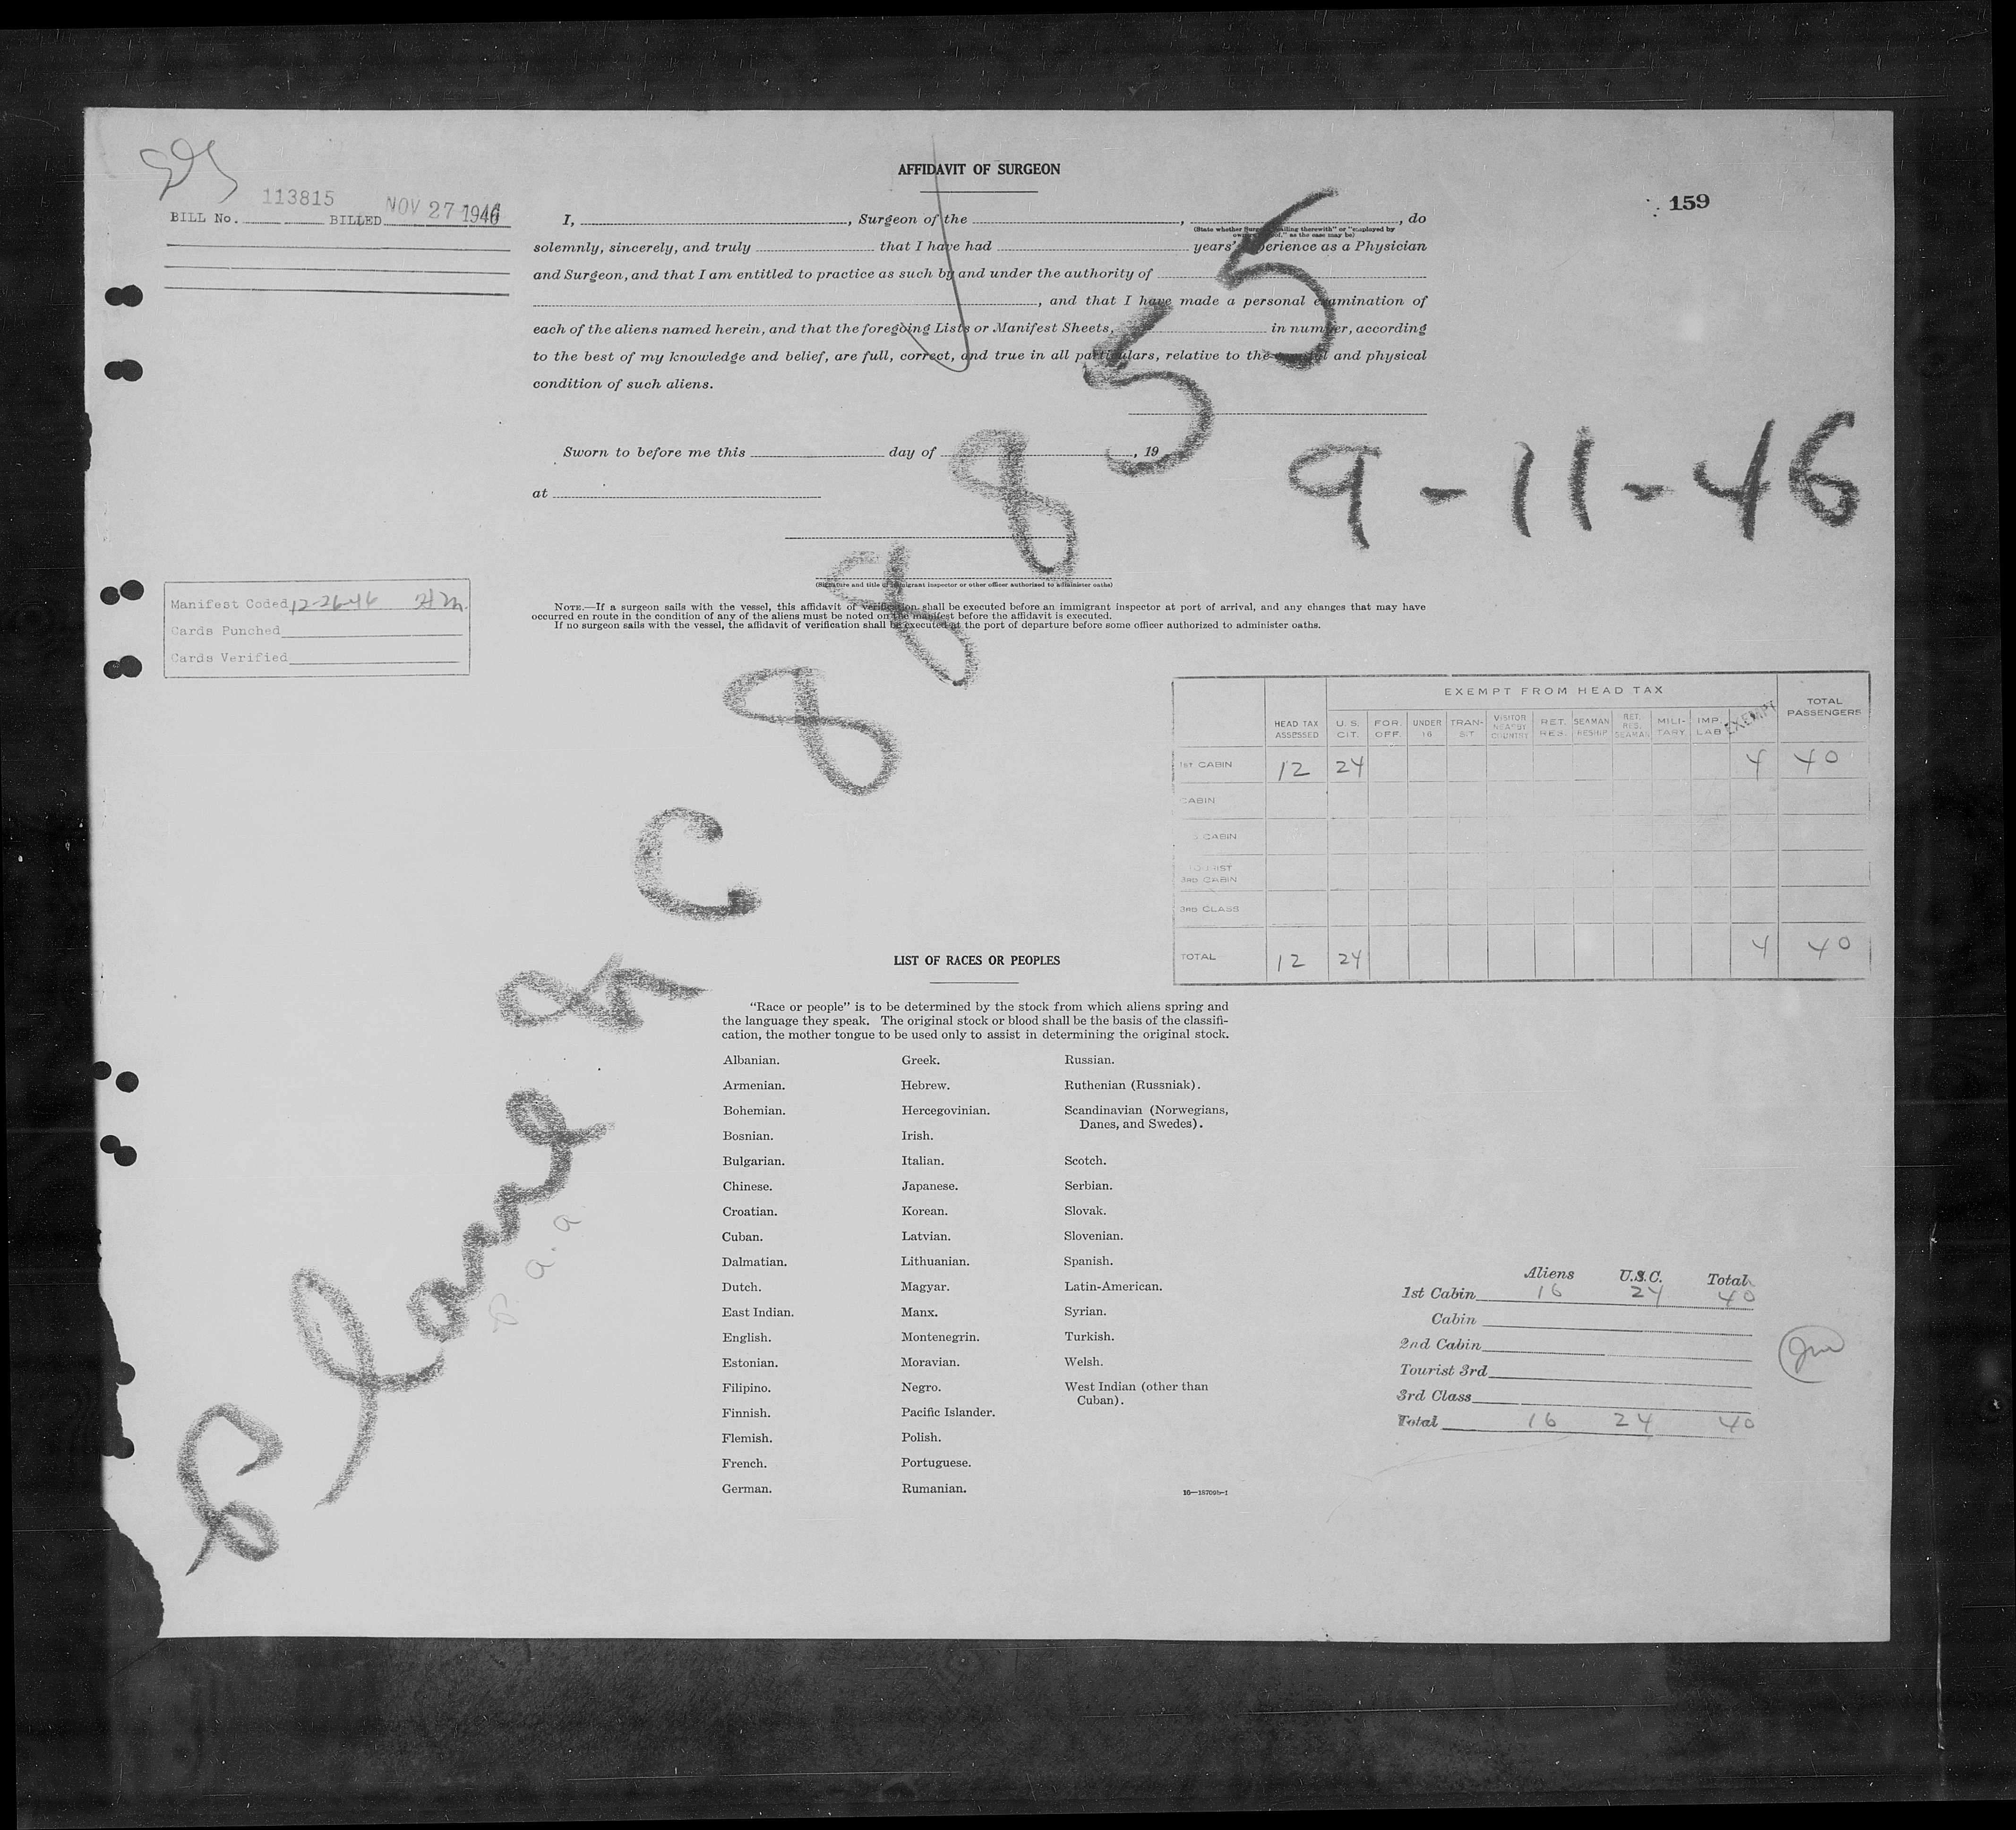 AFFIDAVIT OF SURGEON
159
113815 NOV 27 1946
BILL No. BILLED
I, , Surgeon of the , , do
(State whether Surgeon "sailing therewith" or "employed by
owners thereof," as the case may be)
solemnly, sincerely, and truly that I have had years' experience as a Physician
and Surgeon, and that I am entitled to practice as such by and under the authority of
, and that I have made a personal examination of
each of the aliens named herein, and that the foregoing Lists or Manifest Sheets, in number, according
to the best of my knowledge and belief, are full, correct, and true in all particulars, relative to the mental and physical
condition of such aliens.
Sworn to before me this day of , 19
at
9-11-46
(Signature and title of immigrant inspector or other officer authorized to administer oaths)
NOTE.—If a surgeon sails with the vessel, this affidavit of verification shall be executed before an immigrant inspector at port of arrival, and any changes that may have
occurred en route in the condition of any of the aliens must be noted on the manifest before the affidavit is executed.
If no surgeon sails with the vessel, the affidavit of verification shall be executed at the port of departure before some officer authorized to administer oaths.
Manifest Coded 12-26-46
Cards Punched
Cards Verified
Plane NC 88855
P. a. a
EXEMPT FROM HEAD TAX
HEAD TAX ASSESSED U. S. CIT. FOR. OFF. UNDER 16 TRAN-SIT VISITOR NEARBY COUNTRY RET. RES. SEAMAN RESHIP RET. RES. SEAMAN MILI-TARY IMP. LAB EXEMPT TOTAL PASSENGERS
1st CABIN 12 24 4 40
CABIN
CABIN
TOURIST
3RD CABIN
3RD CLASS
TOTAL 12 24 4 40
LIST OF RACES OR PEOPLES
"Race or people" is to be determined by the stock from which aliens spring and
the language they speak. The original stock or blood shall be the basis of the classifi-
cation, the mother tongue to be used only to assist in determining the original stock.
Albanian. Greek. Russian.
Armenian. Hebrew. Ruthenian (Russniak).
Bohemian. Hercegovinian. Scandinavian (Norwegians,
Danes, and Swedes).
Bosnian. Irish.
Bulgarian. Italian. Scotch.
Chinese. Japanese. Serbian.
Croatian. Korean. Slovak.
Cuban. Latvian. Slovenian.
Dalmatian. Lithuanian. Spanish.
Dutch. Magyar. Latin-American.
East Indian. Manx. Syrian.
English. Montenegrin. Turkish.
Estonian. Moravian. Welsh.
Filipino. Negro. West Indian (other than
Cuban).
Finnish. Pacific Islander.
Flemish. Polish.
French. Portuguese.
German. Rumanian.
16—18709b-1
Aliens U.S.C. Total
1st Cabin 16 24 40
Cabin
2nd Cabin
Tourist 3rd
3rd Class
Total 16 24 40